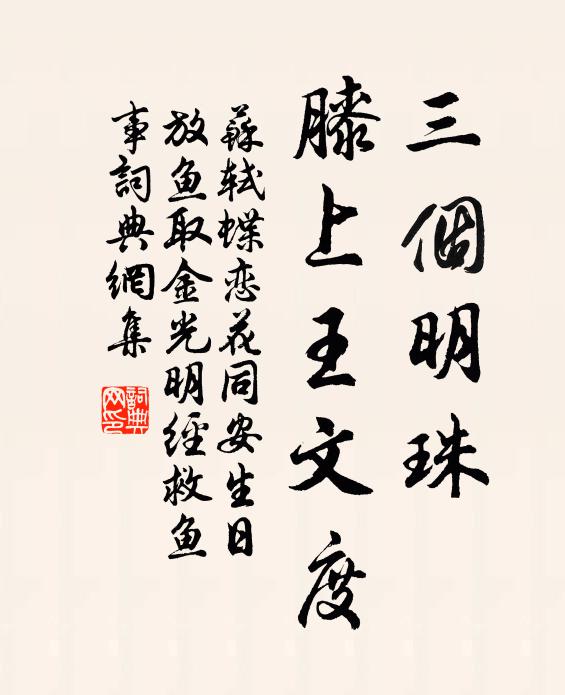 三個明珠
膝上王文度
蘇軾蝶恋花同安生日
放鱼取金光明經救鱼
事詞典網集
詞典网印